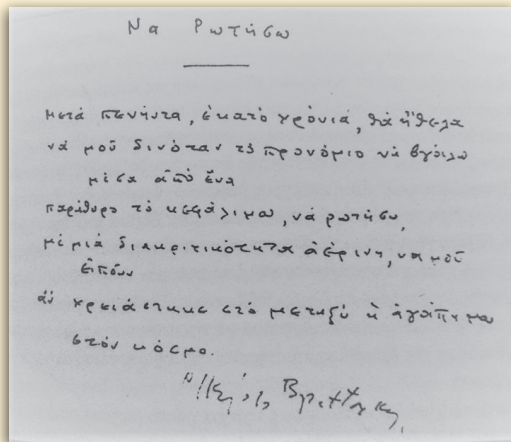 Να Ρωτήσω
μετά πενήντα, ἑκατό χρόνιά, θά ἤθελα
νά μοῦ δινόταν τό προνόμιο νά βγάλω
μέσα ἀπό ἕνα
παράθυρο τό κεφάλι μου, νά ρωτήσω,
μέ μιά διακριτικότητα ἀέρινη, νά μοῦ
εἰποῦν
ἄν χρειάστηκε στό μεταξύ ἡ ἀγάπη μου
στόν κόσμο.
Νικηφόρος Βρεττάκος